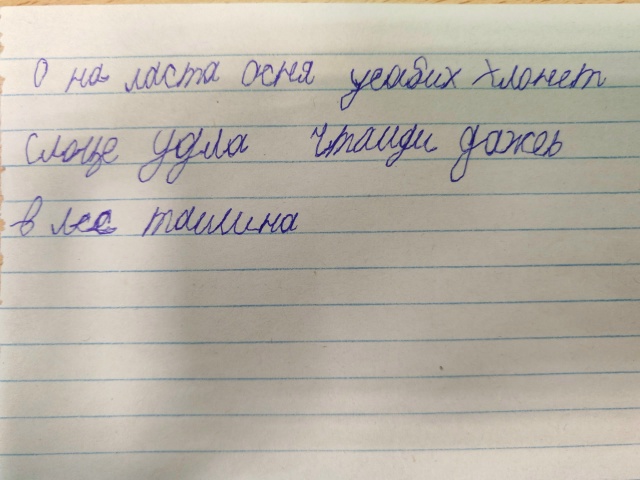 О на ласта осня усабих хлонет
слоце удла чтаиди дажеь
в лес ташина